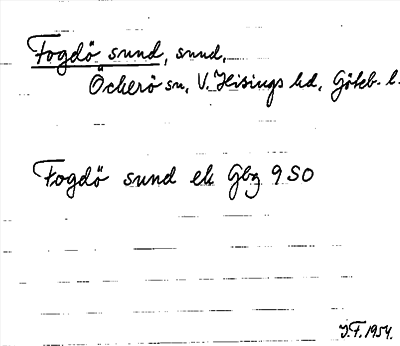 Fogdö sund, sund,
Öckerö sn, V. Hisings hd, Göteb. l.
Fogdö sund ek Gbg 9 SO
J.F. 1954.